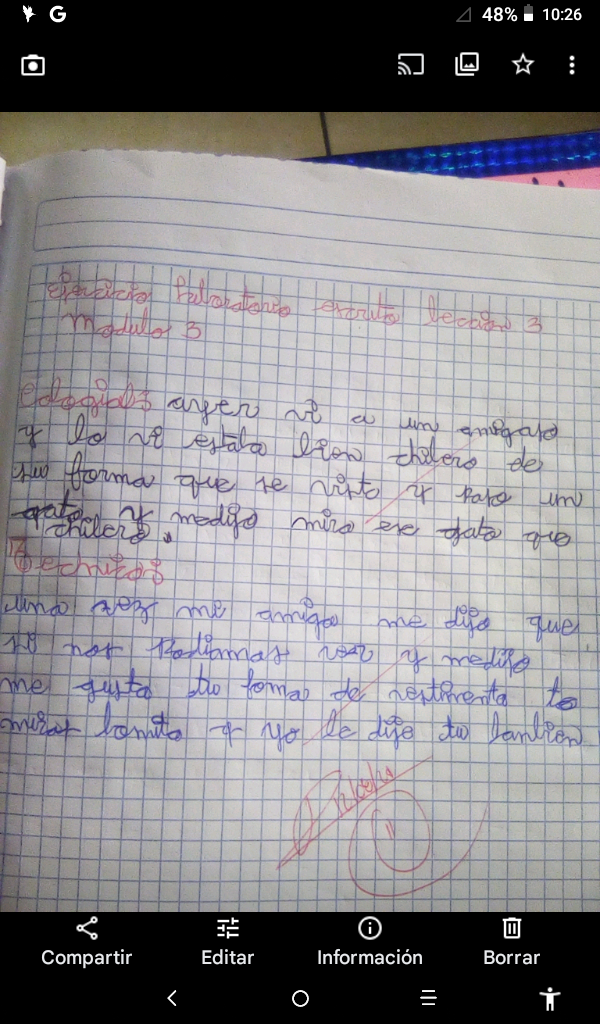 48% 10:26
Ejercicio laboratorio escrito lección 3
Modulo 3
ayer vi a un amigaso
y lo vi estaba bien chilero de
su forma que se visto y paso un
gato y medijo mira ese gato que
chilero.
Technicos
una vez mi amiga me dijo que
si nos Podiamos ver y medijo
me gusta tu foma de vestimenta te
miras bonita y yo le dije tu tanbien
Compartir Editar Información Borrar